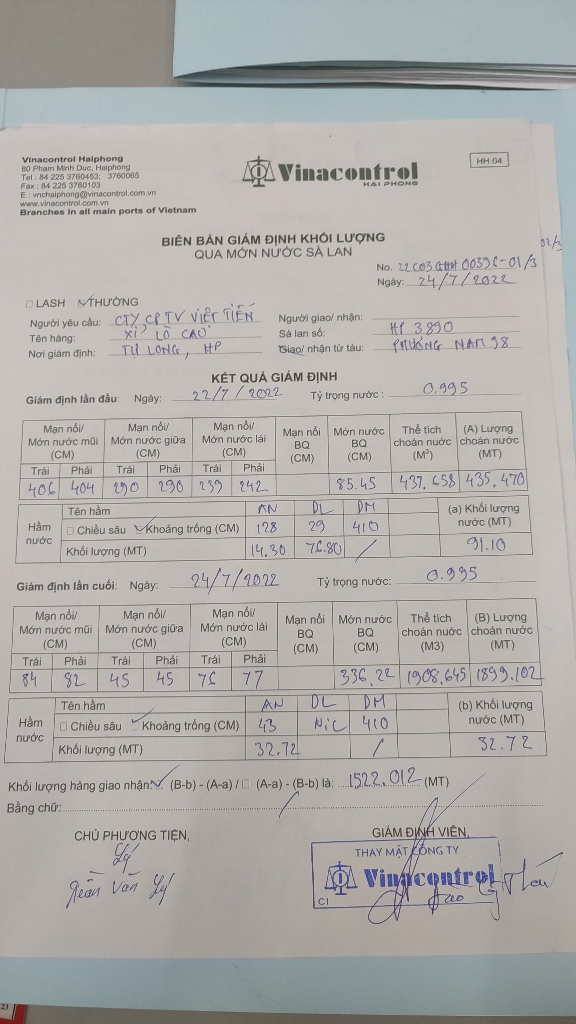 Vinacontrol Haiphong
80 Pham Minh Duc, Haiphong
Tel : 84 225 3760453; 3760065
Fax : 84 225 3760103
E : vnchaiphong@vinacontrol.com.vn
www.vinacontrol.com.vn
Branches in all main ports of Vietnam
Vinacontrol
HAI PHONG
HH.04
BIÊN BẢN GIÁM ĐỊNH KHỐI LƯỢNG
QUA MỚN NƯỚC SÀ LAN
02/3
No. 22C03 0039C-01/3
Ngày: 24/7/2022
LASH THƯỜNG
Người yêu cầu: CTY CP TV VIỆT TIẾN Người giao/ nhận:
Tên hàng: XỈ LÒ CAO Sà lan số: HP 3890
Nơi giám định: TỰ LONG, HP Giao/ nhận từ tàu: PHƯƠNG NAM 98
KẾT QUẢ GIÁM ĐỊNH
Giám định lần đầu: Ngày: 22/7/2022 Tỷ trọng nước: 0.995
Mạn nổi/ Mớn nước mũi (CM) Mạn nổi/ Mớn nước giữa (CM) Mạn nổi/ Mớn nước lái (CM) Mạn nổi BQ (CM) Mớn nước BQ (CM) Thể tích choán nước (M³) (A) Lượng choán nước (MT)
Trái Phải Trái Phải Trái Phải
406 404 290 290 239 242 85.45 437.658 435.470
Hầm nước Tên hầm AN DL DM (a) Khối lượng nước (MT)
Chiều sâu Khoảng trống (CM) 128 29 410
Khối lượng (MT) 14.30 76.80 / 91.10
Giám định lần cuối: Ngày: 24/7/2022 Tỷ trọng nước: 0.995
Mạn nổi/ Mớn nước mũi (CM) Mạn nổi/ Mớn nước giữa (CM) Mạn nổi/ Mớn nước lái (CM) Mạn nổi BQ (CM) Mớn nước BQ (CM) Thể tích choán nước (M3) (B) Lượng choán nước (MT)
Trái Phải Trái Phải Trái Phải
84 82 45 45 76 77 336.22 1908.645 1899.102
Hầm nước Tên hầm AN DL DM (b) Khối lượng nước (MT)
Chiều sâu Khoảng trống (CM) 43 NiL 410
Khối lượng (MT) 32.72 / 32.72
Khối lượng hàng giao nhận: (B-b) - (A-a) / (A-a) - (B-b) là: 1522.012 (MT)
Bằng chữ:
CHỦ PHƯƠNG TIỆN, GIÁM ĐỊNH VIÊN,
THAY MẶT CÔNG TY
Vinacontrol
CI
Lý
Trần Văn Lý
23